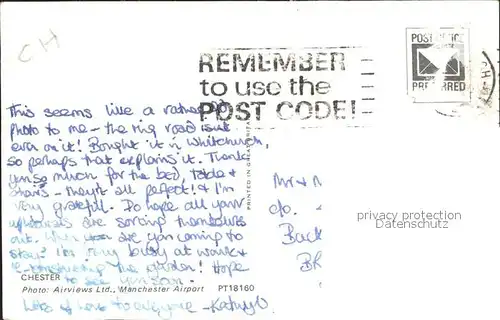 CH
POST OFFICE
PREFERRED
REMEMBER
to use the
POST CODE!
This seems like a rather
photo to me – the ring road isn't
even on it! Bought it in Whitchurch,
so perhaps that explains it. Thank
you so much for the bed, table &
chairs – they're all perfect! & I'm
very grateful. Do hope all your
are sorting themselves
out. When are you coming to
stay? I'm very busy at work &
the garden! Hope
to see you soon.
Lots of love to everyone – Kathryn
CHESTER
Photo: Airviews Ltd., Manchester Airport PT18160
PRINTED IN GREAT BRITAIN
Mr &
c/o.
Back
BR
privacy protection
Datenschutz